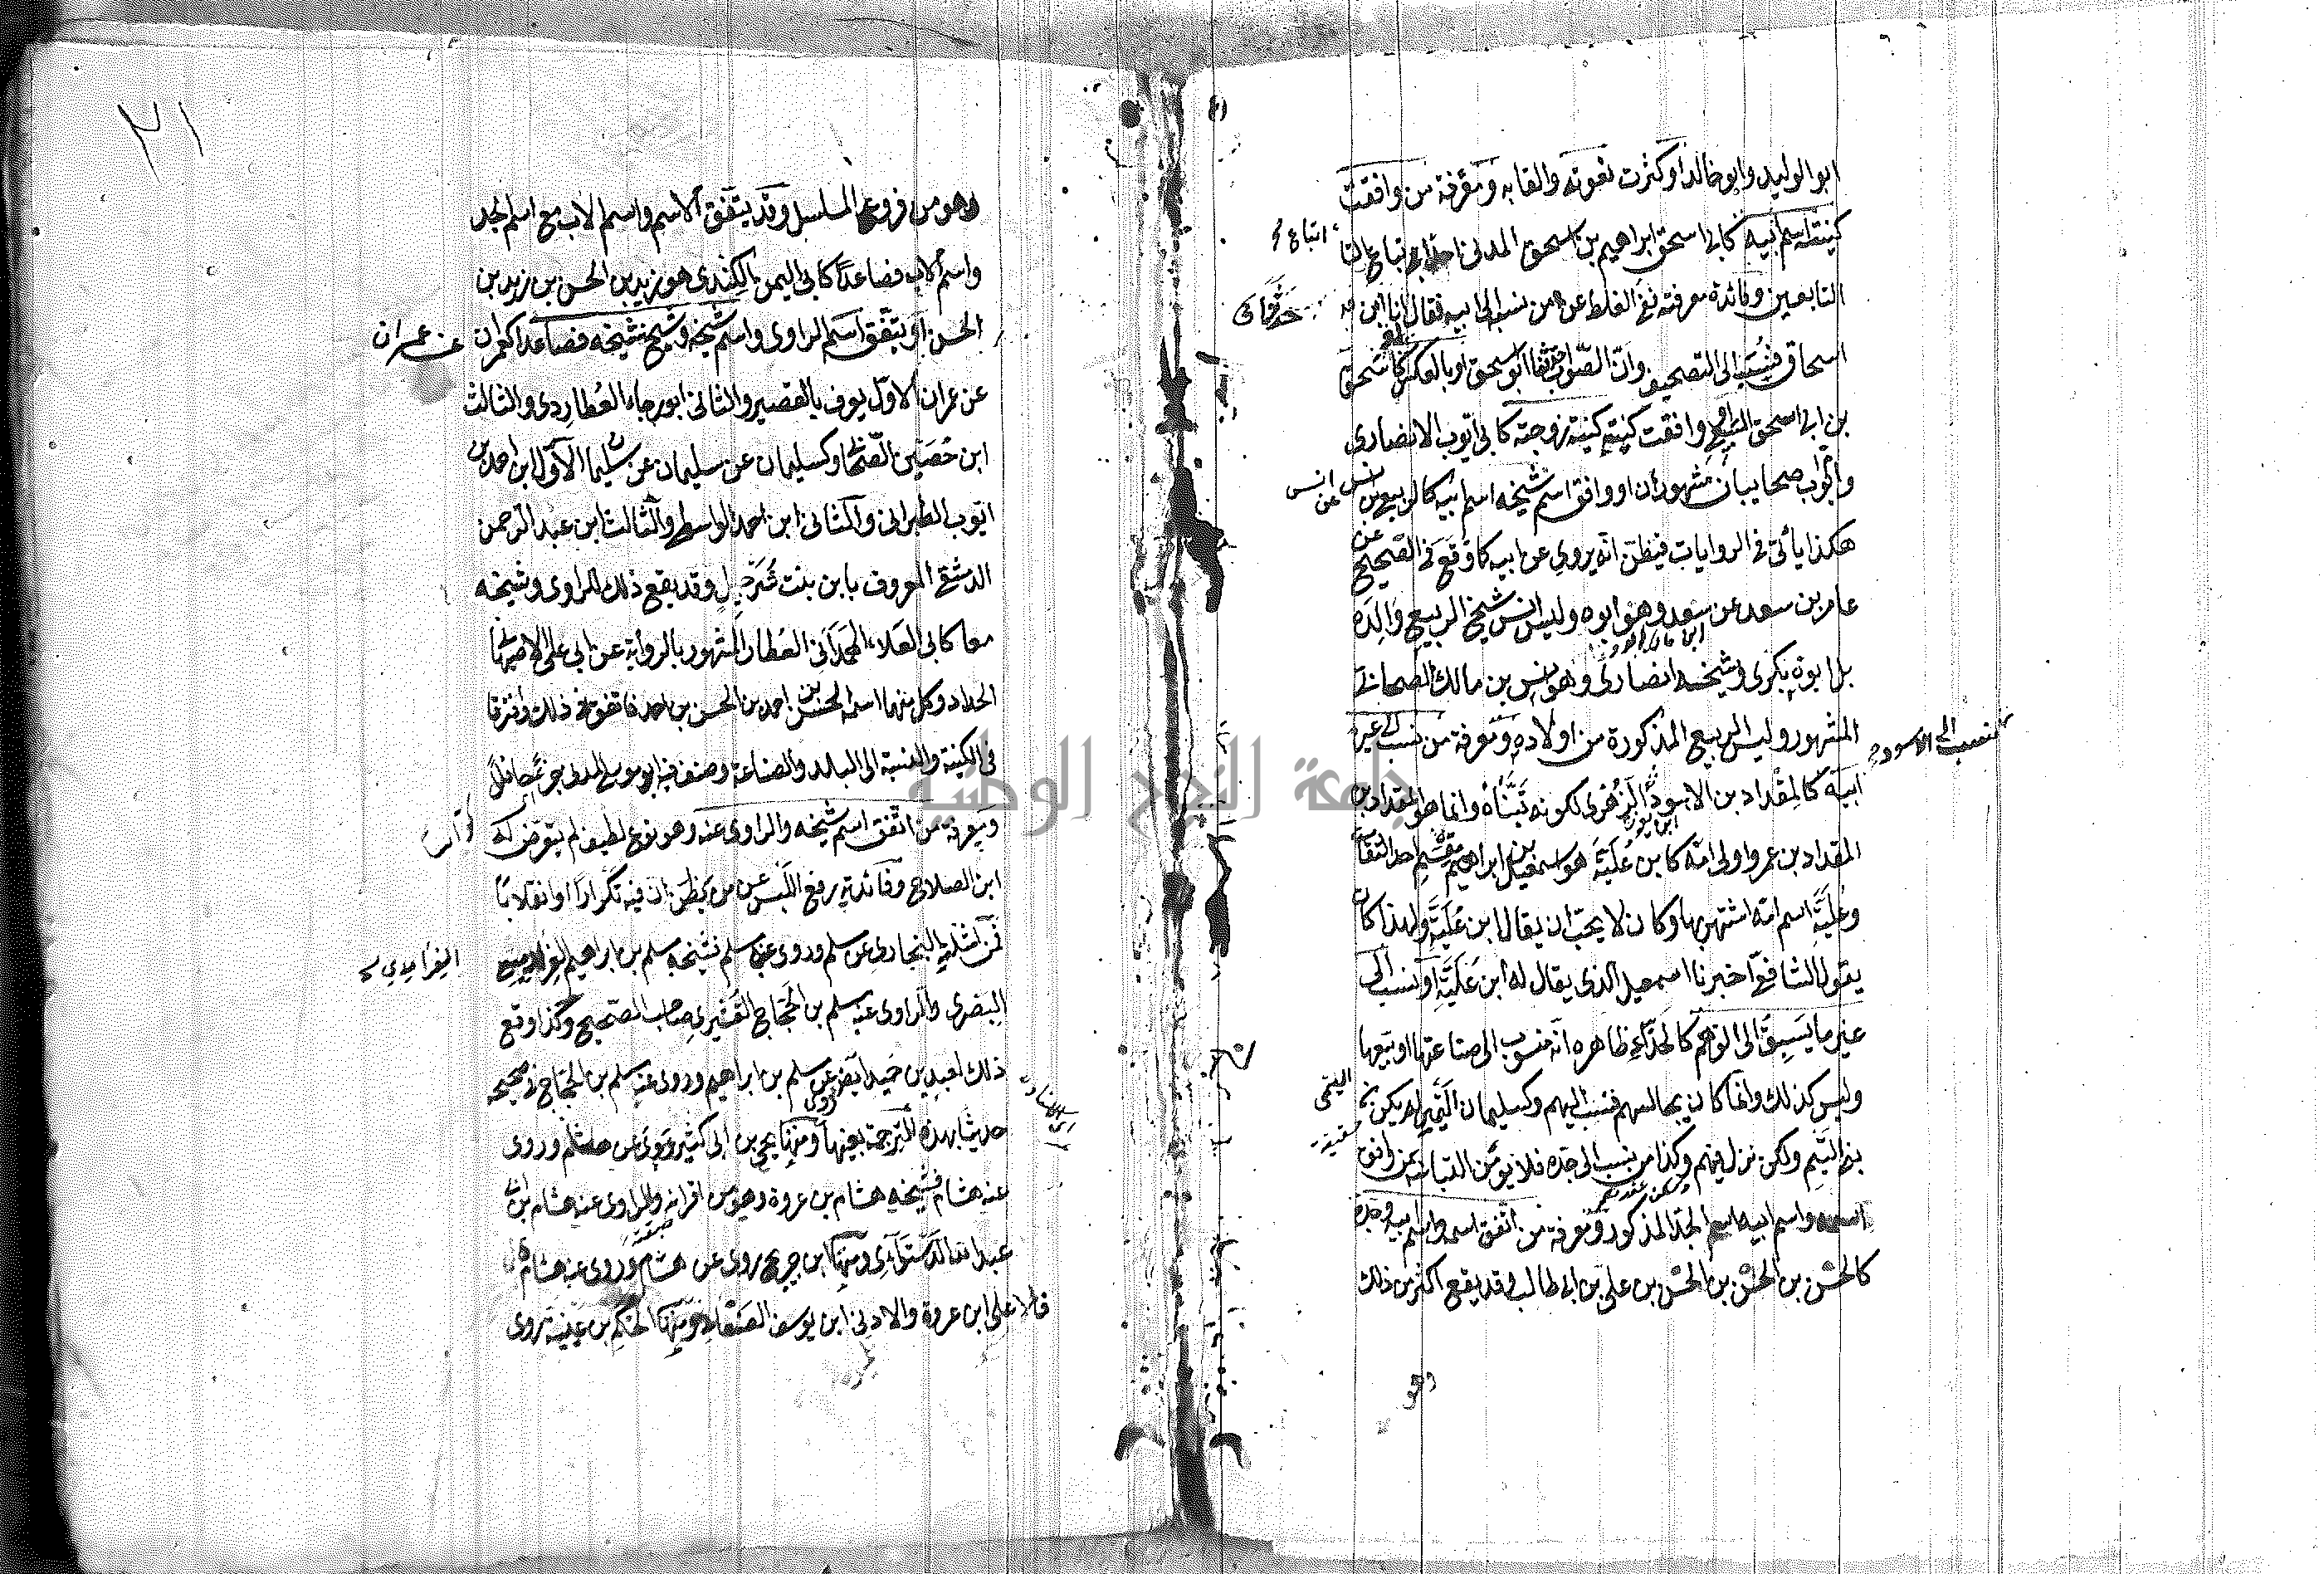 ابو الوليد وابو خالد او كثرت نعوته والقابه ومعرفة من وافقت
كنيته اسم ابيه كابي اسحق ابراهيم بن اسحق المدني احد اتباع
اتباع
التابعين وفائدة معرفته نفي الغلط عمن نسبه الى ابيه فقال انا ابن
اسحاق فنسب الى التصحيف وان الصواب ابو اسحق او بالعكس كاسحق
بن ابي اسحق السبيعي او وافقت كنيته كنية زوجته كابي ايوب الانصاري
وام ايوب صحابيان مشهوران او وافق اسم شيخه اسم ابيه كالربيع بن
انس عن انس
هكذا يأتي في الروايات فيظن انه يروي عن ابيه كما وقع في الصحيح عن
عامر بن سعد عن سعد وهو ابوه وليس انس شيخ الربيع والده
بل ابوه بكري وشيخه انصاري وهو انس بن مالك الصحابي
المشهور وليس الربيع المذكور من اولاده ومعرفة من نسب الى غير
ابيه كالمقداد بن الاسود الزهري لكونه تبناه وانما هو المقداد بن
نسب الى الاسود
المقداد بن عمرو او الى امه كابن علية هو اسمعيل بن ابراهيم بن مقسم احد الثقات
وعلية اسم امه اشتهر بها وكان لا يحب ان يقال ابن علية ولهذا كان
يقول الشافعي اخبرنا اسمعيل الذي يقال له ابن علية او نسب الى
غير ما يسبق الى الوهم كالحذاء ظاهره انه منسوب الى صناعتها او بيعها
وليس كذلك وانما كان يجالسهم فنسب اليهم وكسليمان التيمي لم يكن
التيمي
بني التيم ولكن نزل فيهم وكذا من نسب الى جده فلا يؤمن التباسه بمن وافق
اسمه واسم ابيه اسم الجد المذكور ومعرفة من اتفق اسمه واسم ابيه وجده
كالحسن بن الحسن بن الحسن بن علي بن ابي طالب وقد يقع اكثر من ذلك
وهو
٢١
وهو من فروع المسلسل وقد يتفق الاسم واسم الاب مع اسم الجد
واسم الاب فصاعدا كابي اليمن الكندي هو زيد بن الحسن بن زيد بن
الحسن او يتفق اسم الراوي واسم شيخه وشيخ شيخه فصاعدا كعمران
عن عمران
عن عمران الاول يعرف بالقصير والثاني ابو رجاء العطاردي والثالث
ابن حصين الصحابي وكسليمان عن سليمان عن سليمان الاول ابن احمد بن
ايوب الطبراني والثاني ابن احمد الواسطي والثالث ابن عبد الرحمن
الدمشقي المعروف بابن بنت شرحبيل وقد يقع ذلك للراوي وشيخه
معا كابي العلاء الهمداني العطار المشهور بالرواية عن ابي علي الاصبهاني
الحداد وكل منهما اسمه الحسن بن احمد بن الحسن بن احمد فاتفقا في ذلك وافترقا
في الكنية والنسبة الى البلد والصناعة وصنف فيه ابو موسى المدني جزءا حافلا
ومعرفة من اتفق اسم شيخه والراوي عنه وهو نوع لطيف لم يتعرض له
ابن الصلاح وفائدته رفع اللبس عن من يظن ان فيه تكرارا او انقلابا
فمن امثلته البخاري عن مسلم وروى عنه مسلم فشيخه مسلم بن ابراهيم الفراديسي
الفراهيدي
البصري والراوي عنه مسلم بن الحجاج القشيري صاحب الصحيح وكذا وقع
ذلك لعبد بن حميد ايضا عن مسلم بن ابراهيم وروى عنه مسلم بن الحجاج في صحيحه
حديثا بهذه الترجمة بعينها ومنها يحيى بن ابي كثير روى عن هشام وروى
عنه هشام فشيخه هشام بن عروة وهو من اقرانه والراوي عنه هشام ابن ابي
عبد الله الدستوائي ومنها ابن جريج روى عن هشام وروى عنه هشام
فالاعلى ابن عروة والادنى ابن يوسف الصنعاني ومنها الحكم بن عتيبة روى
جامعة النجاح الوطنية